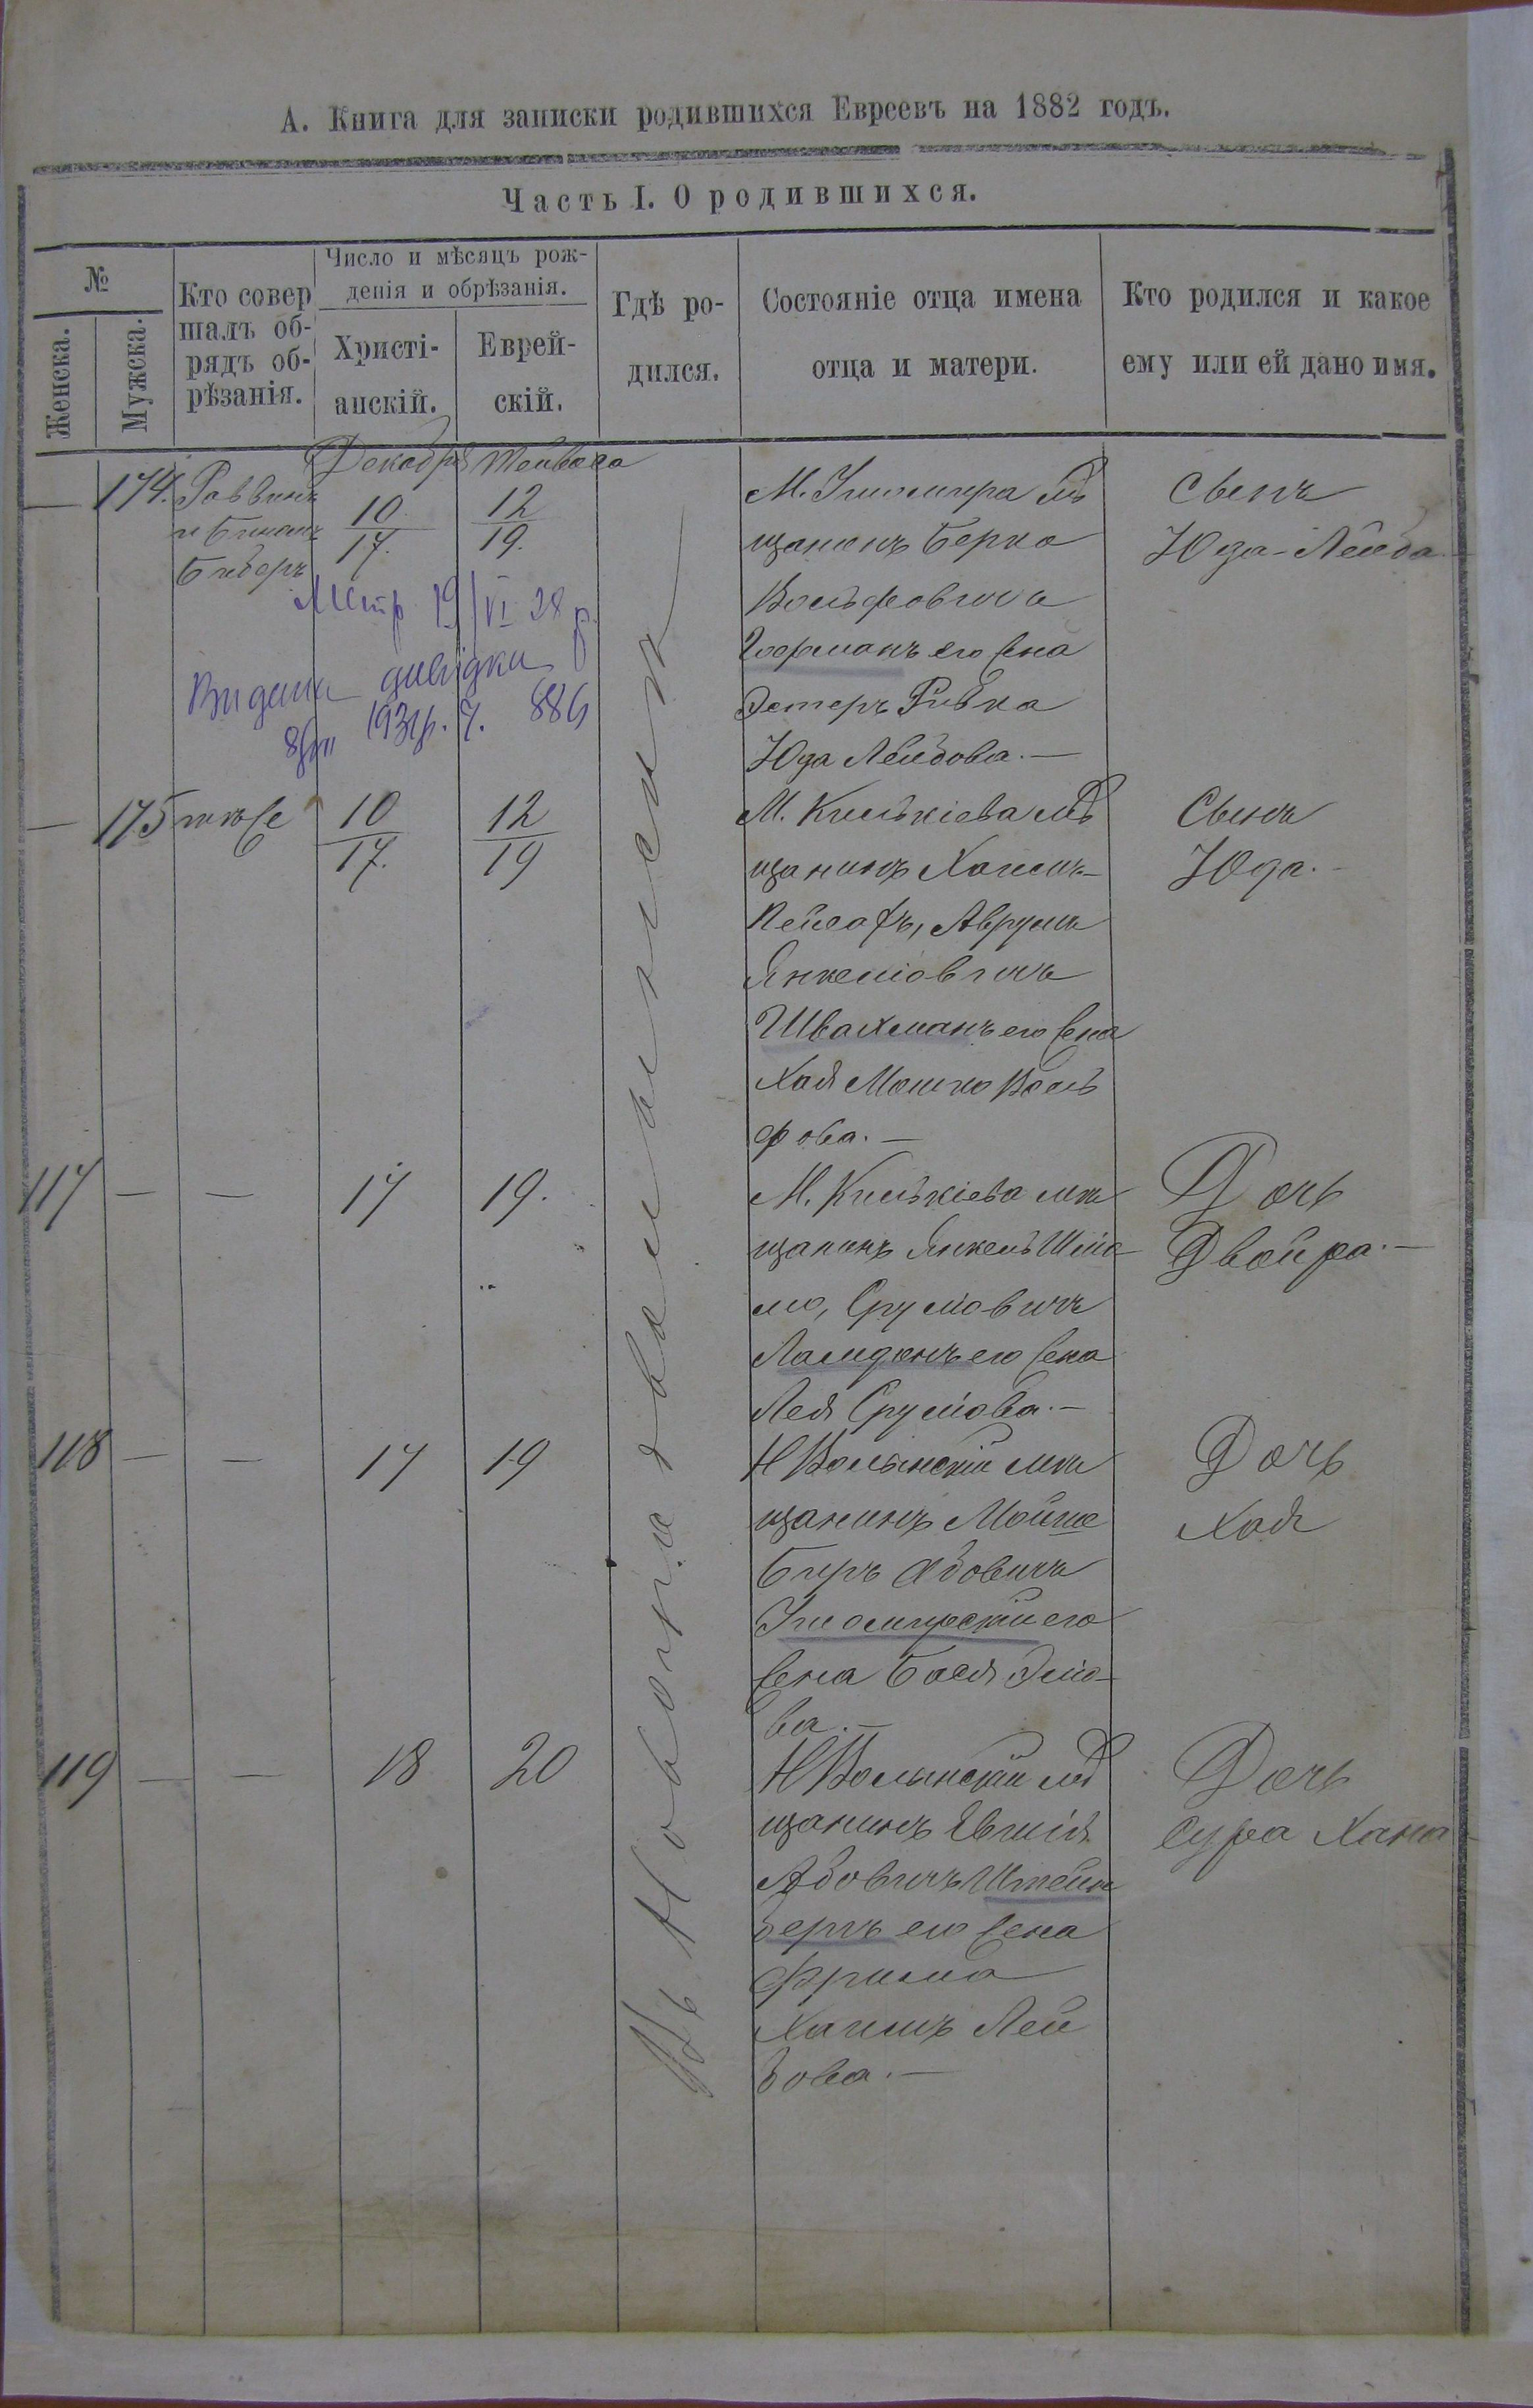 А. Книга для записки родившихся Евреевъ на 1882 годъ.
Часть I. О родившихся.
№
Женска.
Мужска.
Кто совер
шалъ об-
рядъ об-
рѣзанія.
Число и мѣсяцъ рож-
денія и обрѣзанія.
Христі-
анскій.
Еврей-
скій.
Гдѣ ро-
дился.
Состояніе отца имена
отца и матери.
Кто родился и какое
ему или ей дано имя.
Декабря Тейвеса
— 174. Раввинъ
и
10/17. 12/19.
М. мѣ
щанинъ Берко
Вольфовичъ
его жена
Эстеръ Ривка
Юда Лейбова. —
Сынъ
Юда-Лейба
19/VI 28 р.
Видана довідка
193 р. 886
Въ Новоградволынске
— 175 тѣже 10/17. 12/19
М. Килькіева мѣ
щанинъ Хаимъ-
Аврумъ
Янкелювичъ
Швахманъ его жена
Хая Мошко Воль
фова. —
Сынъ
Юда. —
117 — — 17 19.
М. Килькіева мѣ
щанинъ Янкель Шлио
мо, Срулювичъ
его жена
Лея Срулюва. —
Дочь
Двойра. —
118 — — 17 19
НВолынскій мѣ
щанинъ Мойше
Беръ Абовичъ
его
жена Бася Элио-
ва. —
Дочь
Хая
119 — — 18 20
НВолынскій мѣ
щанинъ
Абовичъ Штейн
бергъ его жена
Фрима
Хаимъ Лей
бова. —
Дочь
Сура Хана